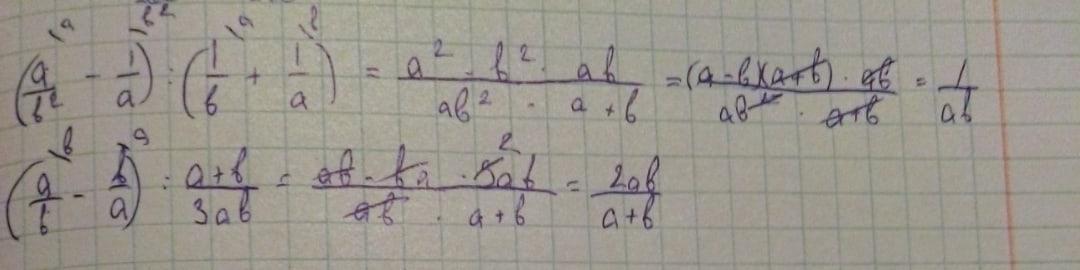 (a/b² \a - 1/a \b²) : (1/b \a + 1/a \b) = a² - b² · ab / ab² · a + b = (a - b)(a + b) · ab / ab² · a + b = 1/ab
(a/b \b - b/a \a) : a + b / 3ab = ab - ba · 3ab 2 / ab · a + b = 2ab / a + b